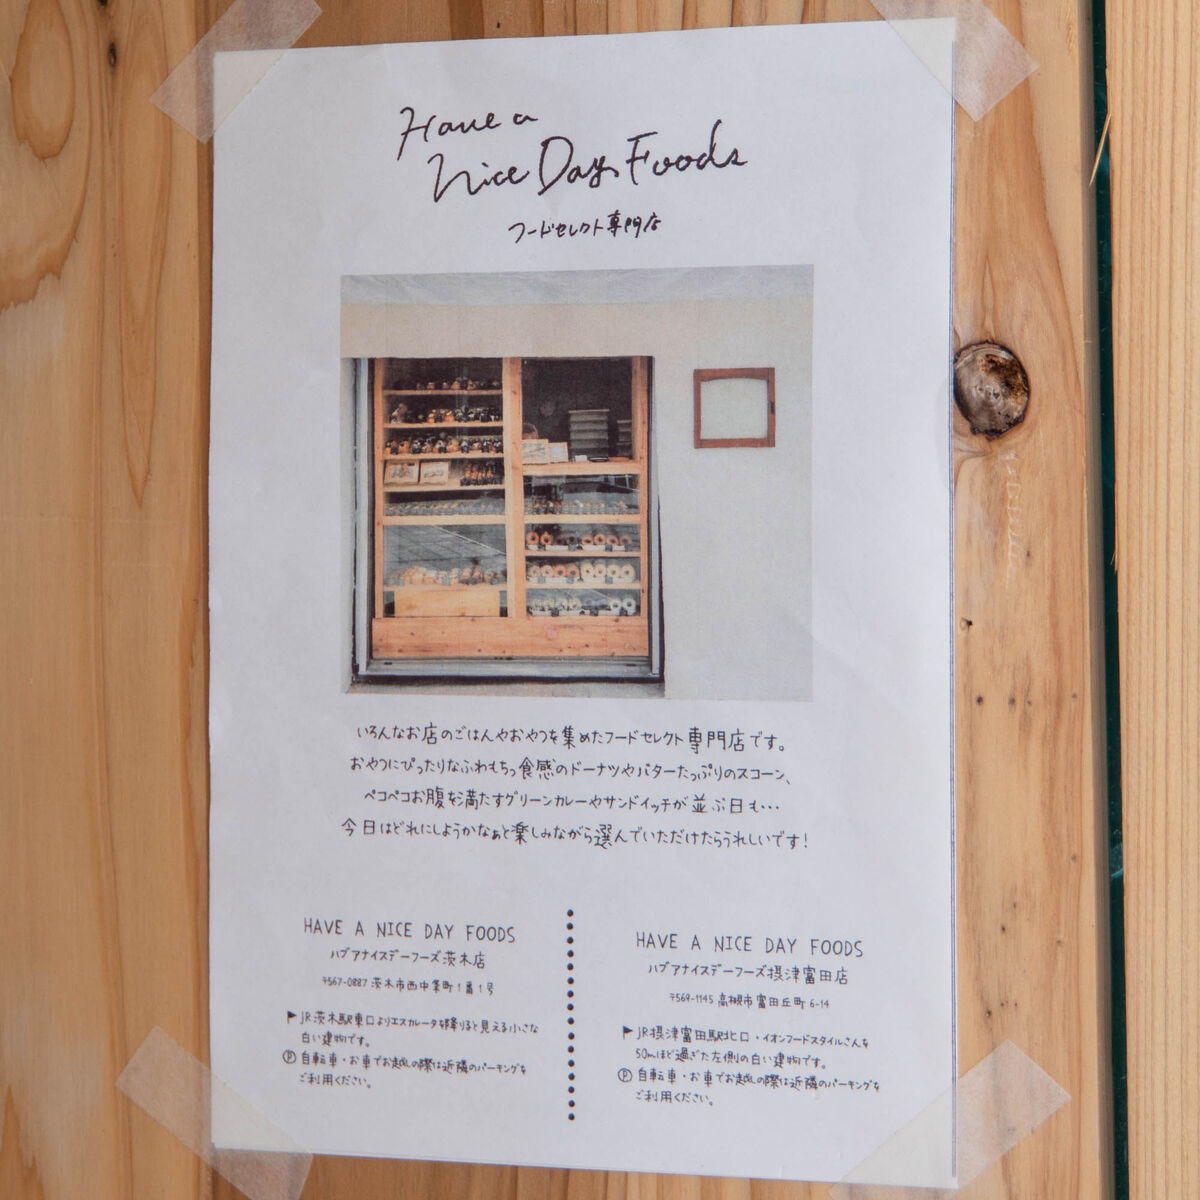 Have a
Nice Day Foods
フードセレクト専門店
いろんなお店のごはんやおやつを集めたフードセレクト専門店です。
おやつにぴったりなふわもちっ食感のドーナツやバターたっぷりのスコーン、
ペコペコお腹を満たすグリーンカレーやサンドイッチが並ぶ日も…
今日はどれにしようかなぁと楽しみながら選んでいただけたらうれしいです!
HAVE A NICE DAY FOODS
ハブアナイスデーフーズ茨木店
〒567-0887 茨木市西中条町1番1号
▶JR茨木駅東口よりエスカレータを降りると見える小さな
白い建物です。
Ⓟ自転車・お車でお越しの際は近隣のパーキングを
ご利用ください。
HAVE A NICE DAY FOODS
ハブアナイスデーフーズ摂津富田店
〒569-1145 高槻市富田丘町6-14
▶JR摂津富田駅北口・イオンフードスタイルさんを
50mほど過ぎた左側の白い建物です。
Ⓟ自転車・お車でお越しの際は近隣のパーキングを
ご利用ください。